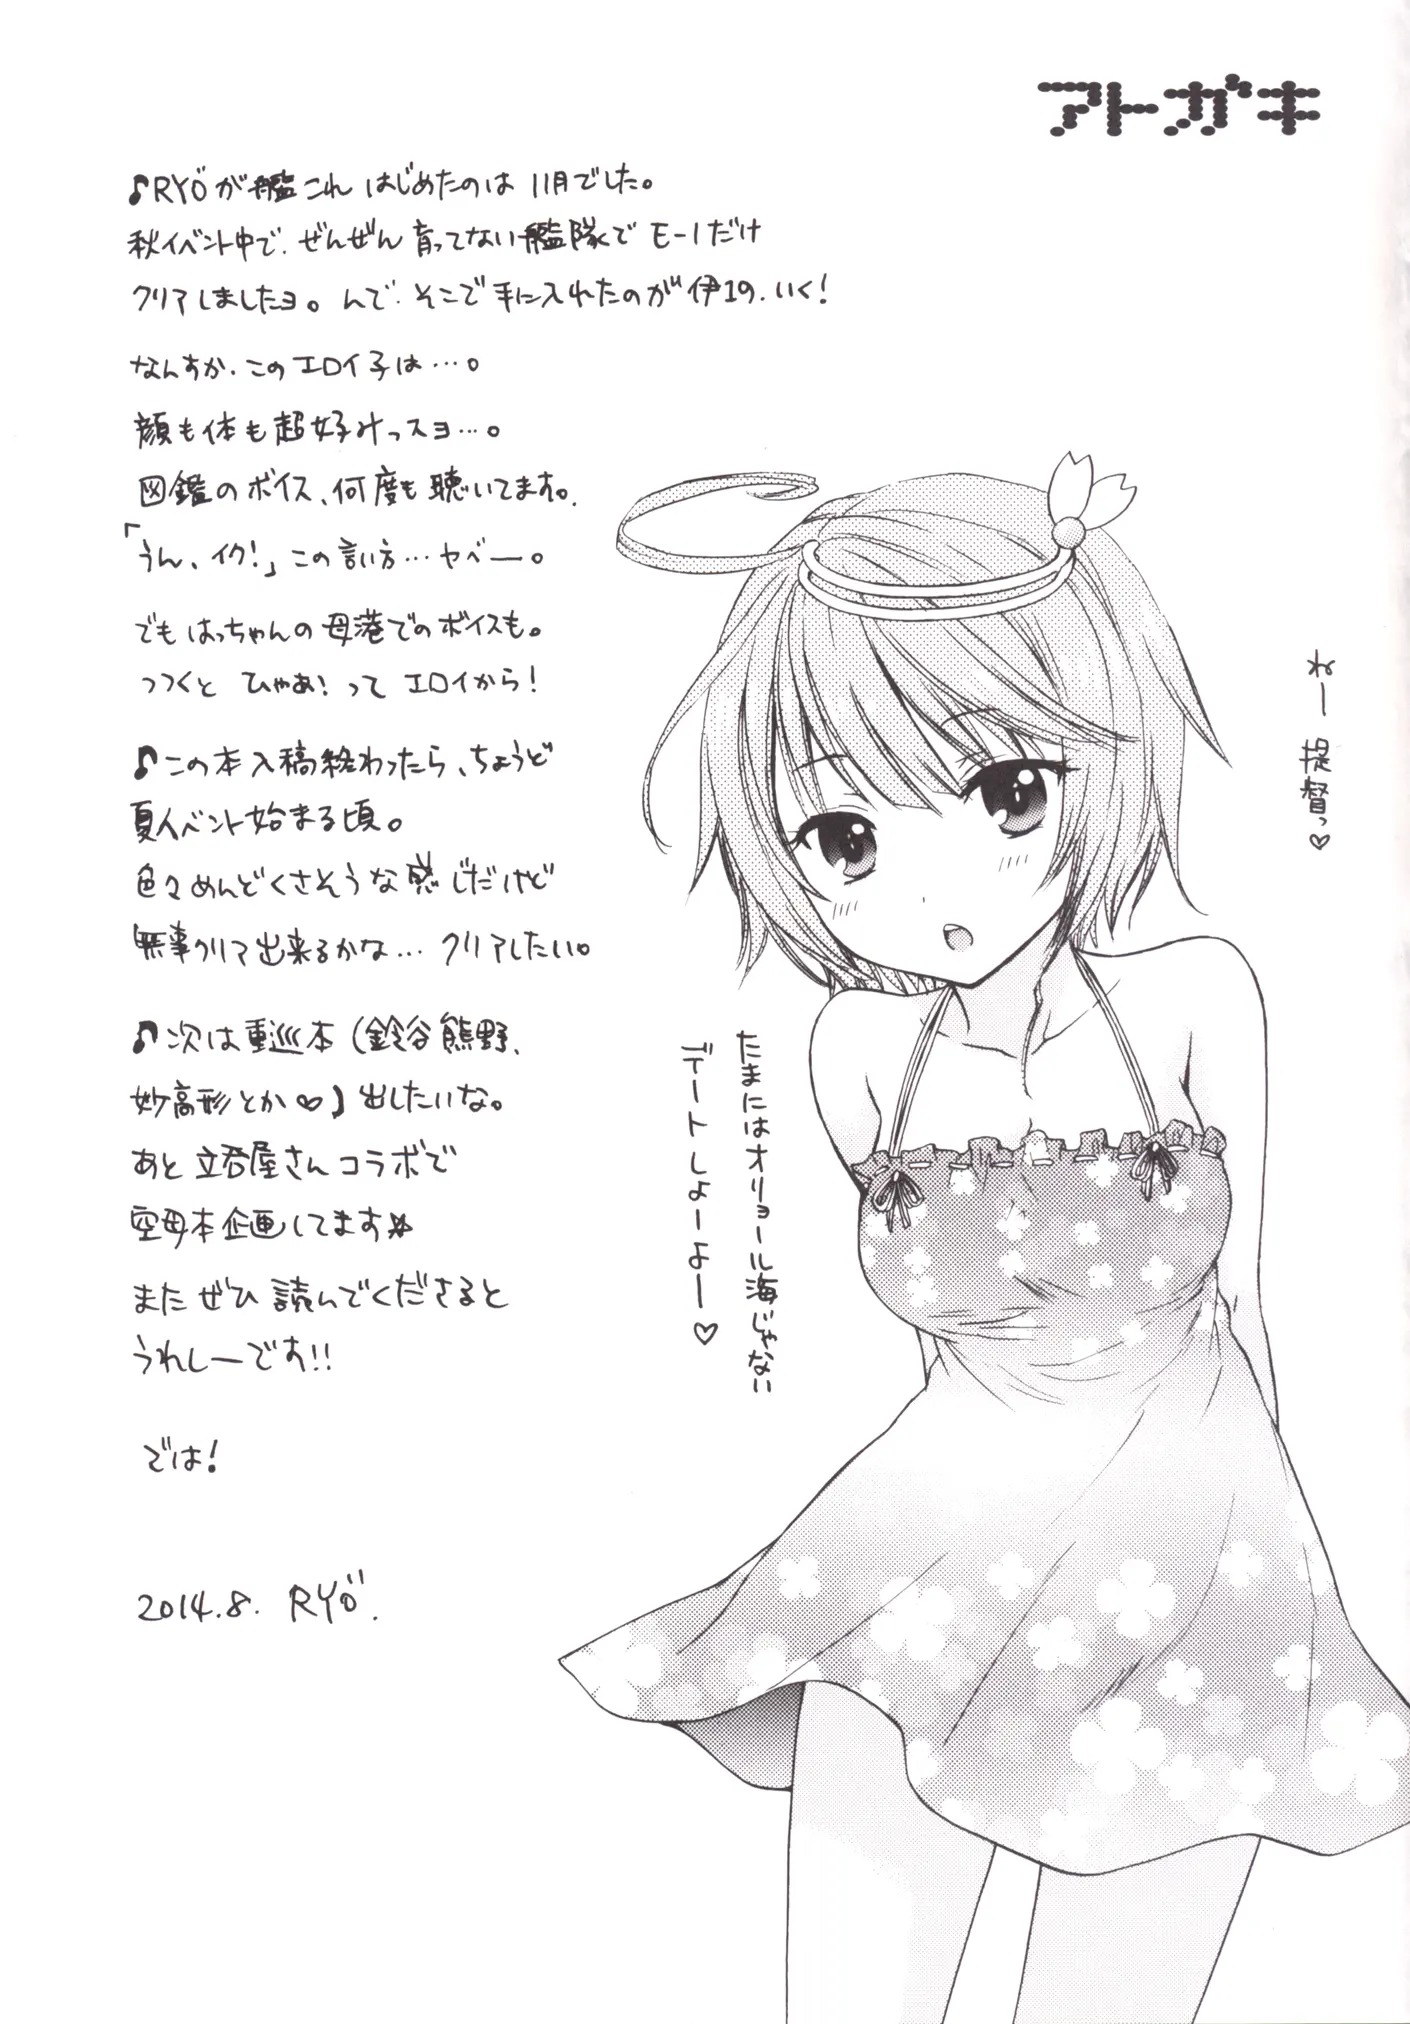 アトガキ
♪RYÖが艦これ はじめたのは 11月でした。
秋イベント中で、ぜんぜん育ってない艦隊でE-1だけ
クリアしましたヨ。んで、そこで手に入れたのが伊19、いく!
なんすか、このエロイ子は…。
顔も体も超好みっスヨ…。
図鑑のボイス、何度も聴いてます。
「うん、イク!」この言い方…ヤベー。
でもはっちゃんの母港でのボイスも。
つつくと ひゃあ!って エロイから!
♪この本入稿終わったら、ちょうど
夏イベント始まる頃。
色々めんどくさそうな感じだけど
無事クリア出来るかな… クリアしたい。
♪次は重巡本(鈴谷熊野、
妙高形とか♡)出したいな。
あと 立呑屋さんコラボで
空母本企画してます☆
またぜひ読んでくださると
うれしーです!!
では!
2014.8. RYÖ.
ねー 提督っ♡
たまにはオリョール海じゃない
デートしよーよー♡